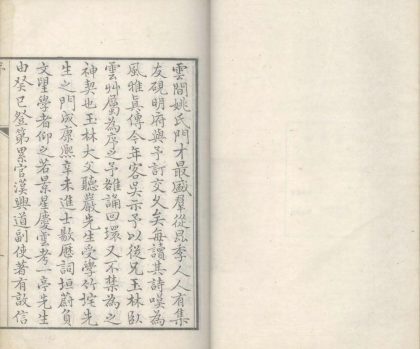 雲間姚氏門才最盛羣從昆季人人有集
友硯明府與予訂交久矣每讀其詩嘆為
風雅真傳今年客吳示予以從兄玉林臥
雲艸屬為序之予雒誦回環又不禁為之
神契也玉林大父聽巖先生受學竹垞先
生之門成康熙辛未進士敭歷詞垣蔚負
文望學者仰之若景星慶雲考一亭先生
由癸巳登第累官漢興道副使著有敔信
序